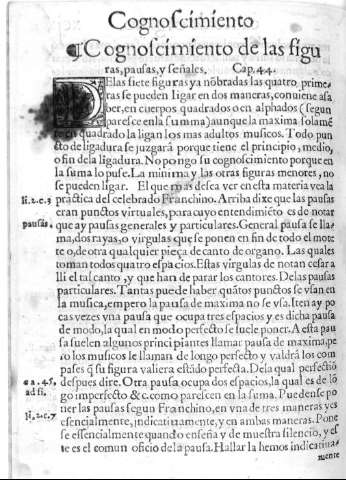 Cognoscimiento
¶Cognoscimiento de las figu
ras, pausas, y señales. Cap. 44.
DElas siete figuras ya nõbradas las quatro prime-
ras se pueden ligar en dos maneras, conuiene asa
ber, en cuerpos quadrados o en alphados (segun
paresce en la summa) aunque la maxima solamẽ
te en quadrado la ligan los mas adultos musicos. Todo pun
cto de ligadura se juzgará porque tiene el principio, medio,
o fin de la ligadura. No pongo su cognoscimiento porque en
la suma lo puse. La minima y las otras figuras menores, no
se pueden ligar. El que mas desea ver en esta materia vea la
li. 2. c. 3 práctica del celebrado Franchino. Arriba dixe que las pausas
eran punctos virtuales, para cuyo entendimiẽto es de notar
pausas. que ay pausas generales y particulares. General pausa se lla-
ma, dos rayas, o virgulas que se ponen en fin de todo el mote
te o, de otra qualquier pieça de canto de organo. Las quales
toman todos quatro espacios. Estas virgulas de notan cesar a
lli el tal canto, y que han de parar los cantores. Delas pausas
particulares. Tantas puede haber, quãtos punctos se vsan en
la musica, empero la pausa de maxima no se vsa. Iten ay po
cas vezes vna pausa que ocupa tres espacios y es dicha pausa
de modo, la qual en modo perfecto se suele poner. A esta pau
sa suelen algunos principiantes llamar pausa de maxima, pe
ro los musicos le llaman de longo perfecto y valdrá los com
pases q̃ su figura valiera estãdo perfecta. Dela qual perfectiõ
ca. 45. despues dire. Otra pausa ocupa dos espacios, la qual es de lõ
ad fi. go imperfecto &c. como parescen en la suma. Puedense po
li. 2. c. 7 ner las pausas segun Franchino, en vna de tres maneras y es
esencialmente, indicatiuamente, y en ambas maneras. Pone
se essencialmente quando enseña y de muestra silencio, y es
te es el comun oficio dela pausa. Hallar la hemos indicatiua
mente